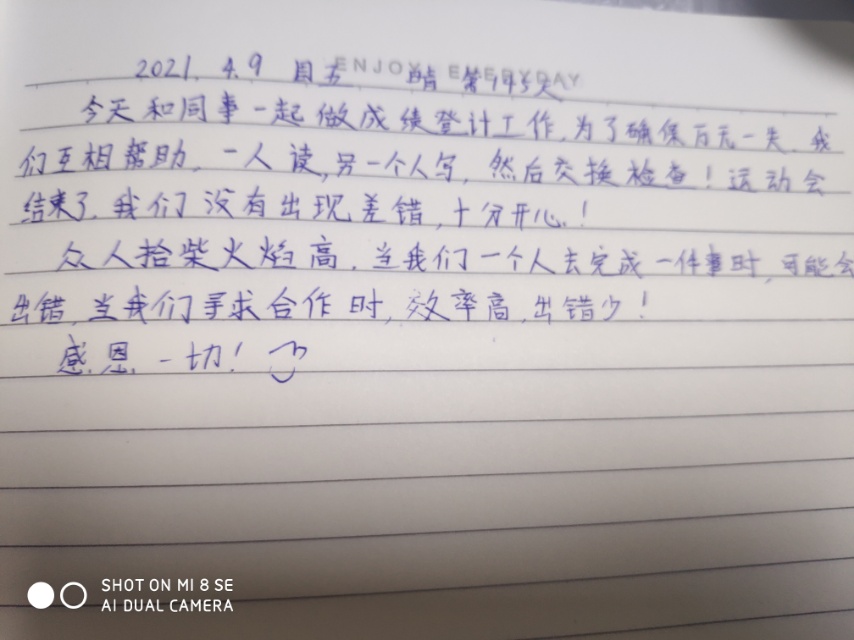 ENJOY EVERYDAY
2021. 4.9 周五 晴 第945天
今天和同事一起做成绩登计工作,为了确保万无一失,我
们互相帮助,一人读,另一个人写,然后交换检查!运动会
结束了,我们没有出现差错,十分开心!
众人拾柴火焰高,当我们一个人去完成一件事时,可能会
出错,当我们寻求合作时,效率高,出错少!
感恩一切!
SHOT ON MI 8 SE
AI DUAL CAMERA